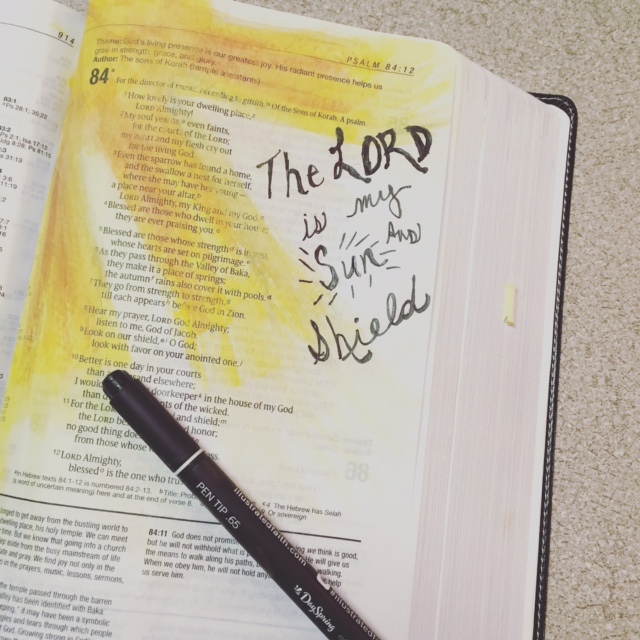 914
PSALM 84:12
Theme: God's living presence is our greatest joy. His radiant presence helps us
grow in strength, grace, and glory.
Author: The sons of Korah (temple assistants)
84
For the director of music. According to gittith. Of the Sons of Korah. A psalm.
1 How lovely is your dwelling place,
LORD Almighty!
2 My soul yearns, even faints,
for the courts of the LORD;
my heart and my flesh cry out
for the living God.
3 Even the sparrow has found a home,
and the swallow a nest for herself,
where she may have her young—
a place near your altar,
LORD Almighty, my King and my God.
4 Blessed are those who dwell in your house;
they are ever praising you.
5 Blessed are those whose strength is in you,
whose hearts are set on pilgrimage.
6 As they pass through the Valley of Baka,
they make it a place of springs;
the autumn rains also cover it with pools.
7 They go from strength to strength,
till each appears before God in Zion.
8 Hear my prayer, LORD God Almighty;
listen to me, God of Jacob.
9 Look on our shield, O God;
look with favor on your anointed one.
10 Better is one day in your courts
than and elsewhere;
I would doorkeeper in the house of my God
than of the wicked.
11 For the LORD and shield;
the LORD honor;
no good thing does
from those whose
12 LORD Almighty,
blessed is the one who
In Hebrew texts 84:1-12 is numbered 84:2-13. Title:
a word of uncertain meaning) here and at the end of verse 8.
The Hebrew has Selah
Or sovereign
The LORD
is my
Sun AND
Shield
PEN TIP .65
illustratedfaith.com
DaySpring
to get away from the bustling world to
dwelling place, his holy temple. We can meet
But we know that going into a church
aside from the busy mainstream of life
and pray. We find joy not only in the
in the prayers, music, lessons, sermons,
the temple passed through the barren
has been identified with Baka.
it may have been a symbolic
and tears through which people
God. Growing strong in
84:11 God does not
but he will not withhold what is
the means to walk along his paths,
When we obey him, he will not hold
us serve him.
we think is good,
will give us
walking.
help